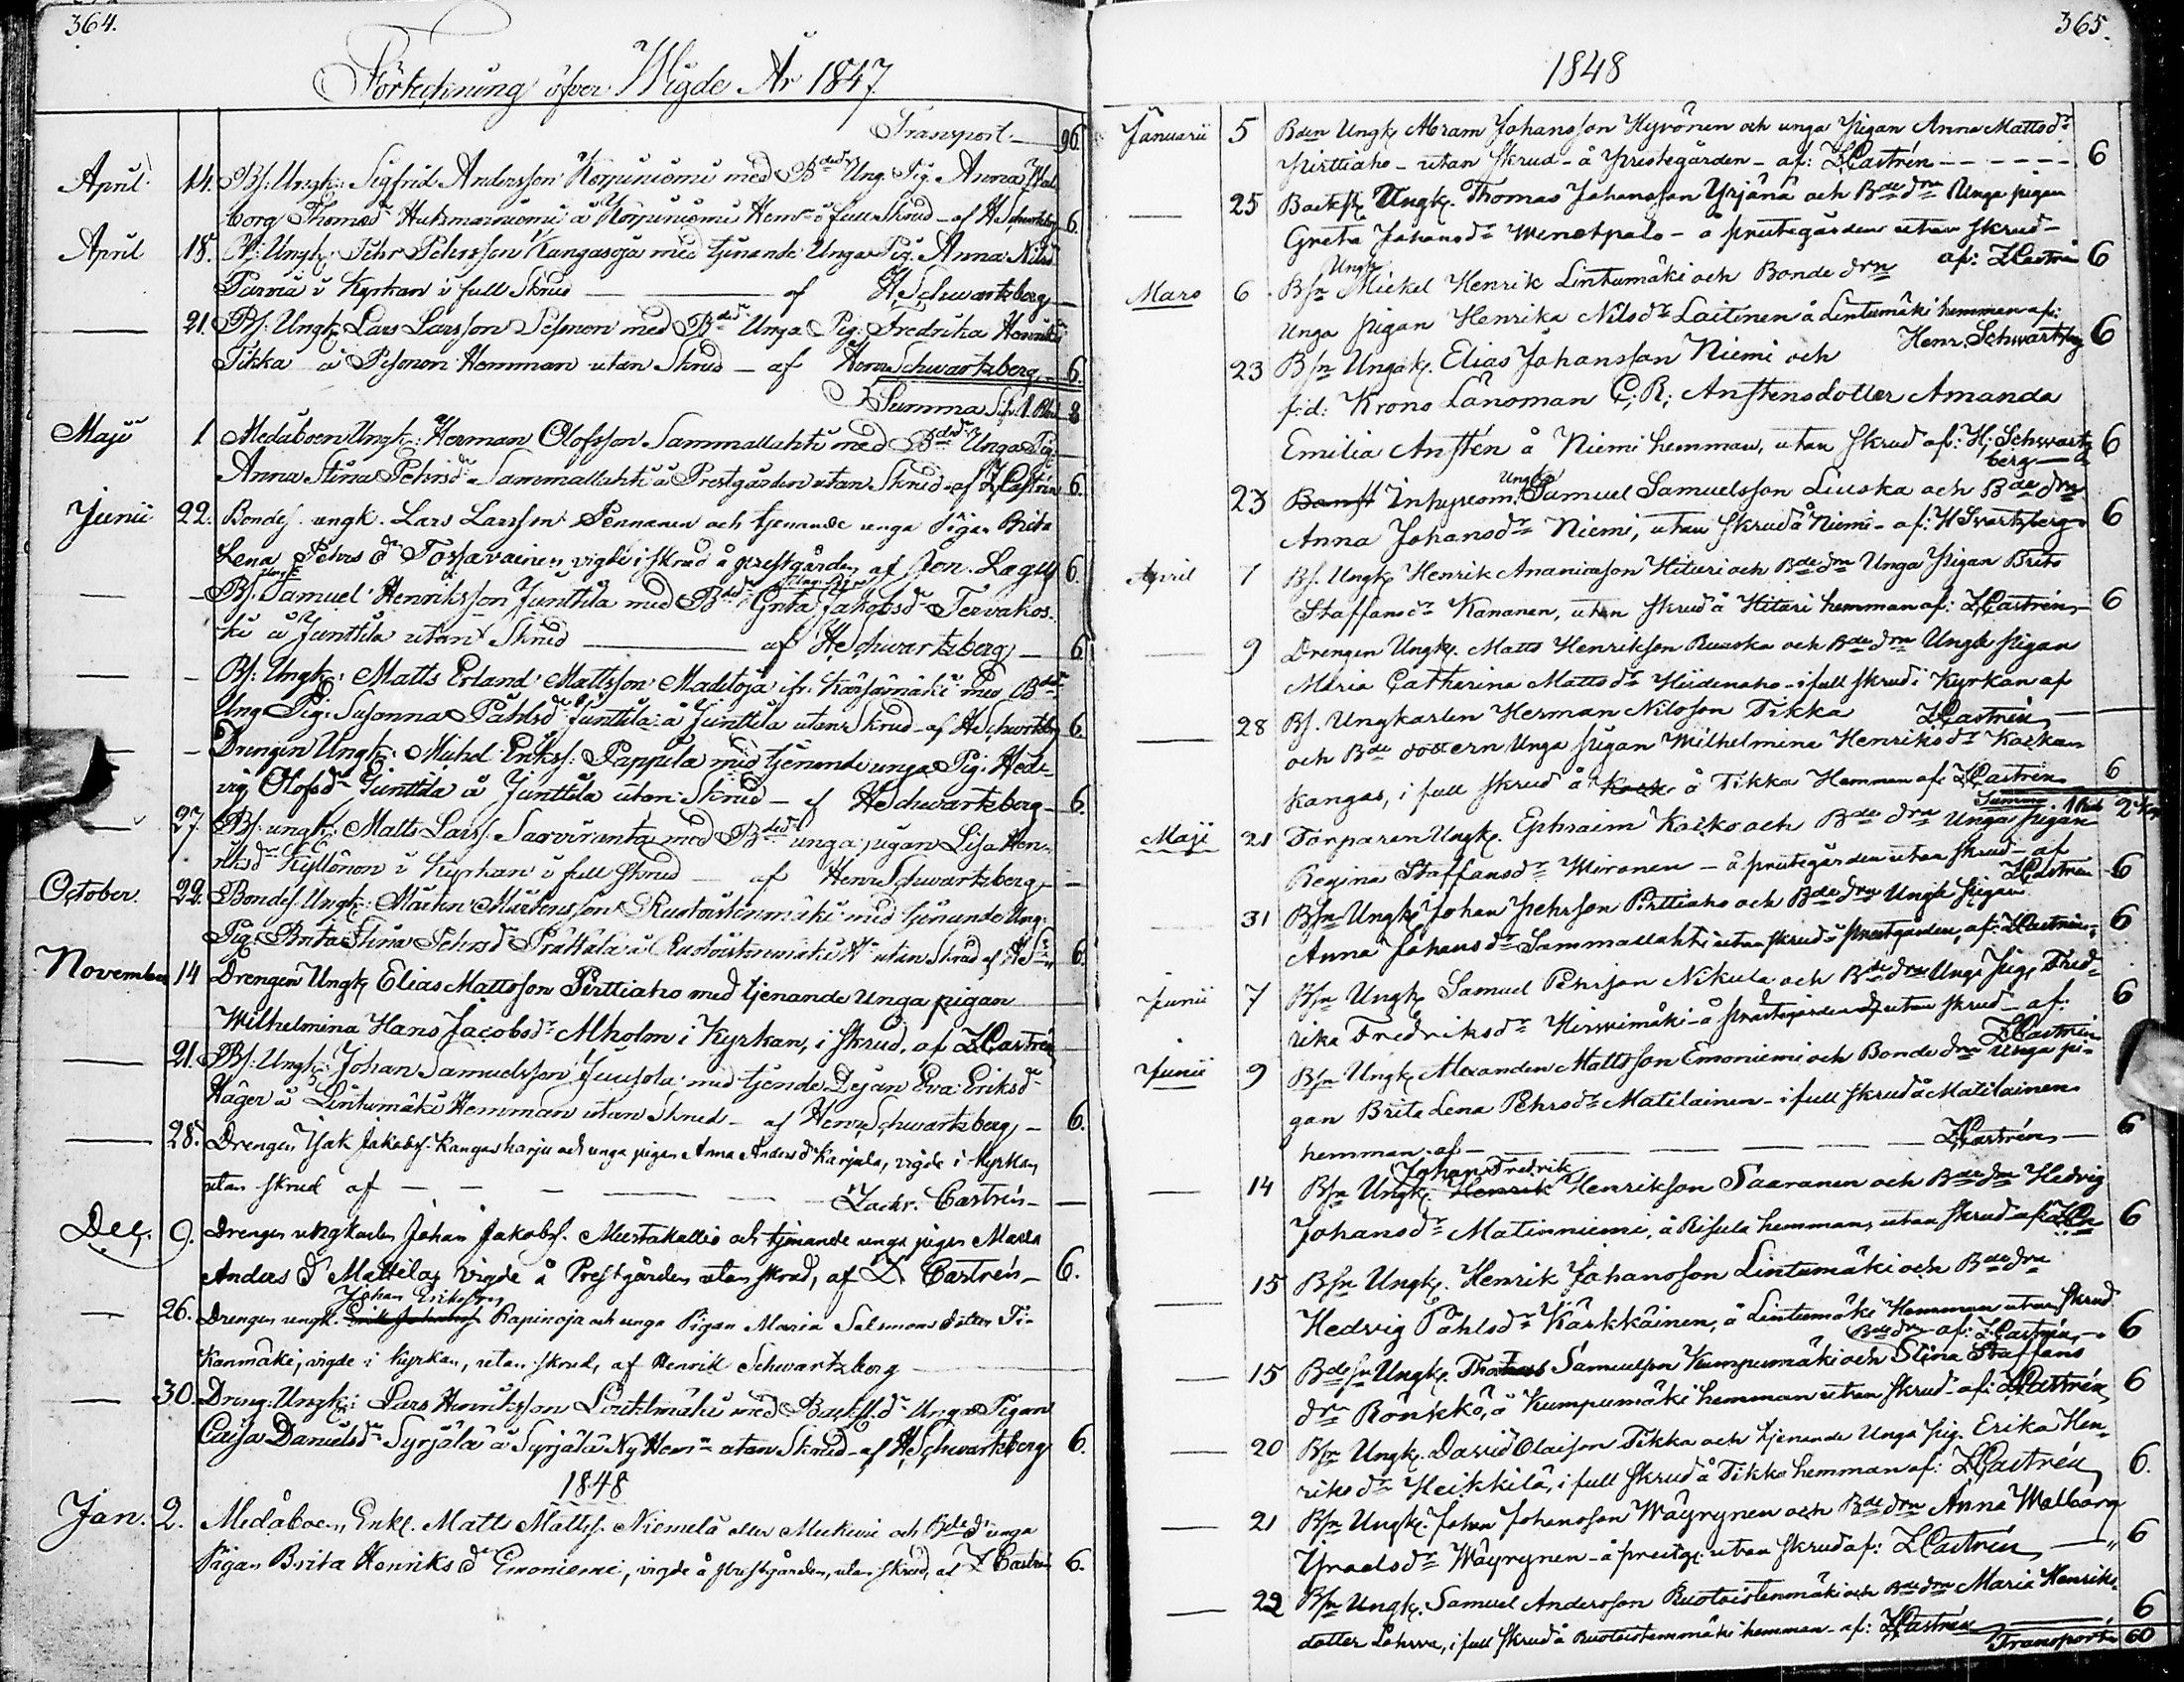 364.
Förteckning öfver Wigde År 1847
Transport 96.
April 14. Bs: Ungk: Sigfrid Andersson Korpuniemi med Bdedr Ung. Pig. Anna Wal
borg Thomsdr Huhmarniemi å Korpuniemi Hemn i full Skrud - af HSchwartzberg 6.
April 18. Bs: Ungk: Pehr Pehrsson Kangasoja med tjenande Unga Pig. Anna Nilsdr
Parviä i Kyrkan i full Skrud — af HSchwartzberg —
— 21. Bs: Ungk: Lars Larsson Pesonen med Bdedr Unga Pig: Fredrika Henriksdr
Tikka å Pesonen Hemman utan Skrud — af HenrSchwartzberg 6.
Summa Silf. 1 Rbl 8
Maji 1 Medåboen Ungk: Herman Olofsson Sammallahti med Bdedr Unga Pig.
Anna Stina Pehrsdr Sammallahti å Prestgården utan Skrud af ZCastrén 6.
Junii 22. Bondes. ungk. Lars Larsson Pennanen och tjenande unga Pigan Brita
Lena Pehrs dr Tossavainen, vigde i skrud å prestgården af Jon. Lagus 6.
— — Bs: Ungk Samuel Henriksson Junttila med Bdedr Ung. Pigan Greta Jakobsdr Tervakos-
ki å Junttila utan Skrud — af HSchwartzberg — 6
— — Bs: Ungk: Matts Erland Mattsson Madetoja ifr. Kärsämäki med Bdedr
Ung Pig: Susanna Påhlsdr Junttila å Junttila utan Skrud - af HSchwartzberg 6.
— — Drengen Ungk: Michel Erikss: Pappila med tjenande unga Pig: Hed-
vig Olofsdr Junttila å Junttila utan Skrud — af HSchwartzberg — 6.
— 27. Bs: ungk: Matts Larss. Saviranta med Bdedr unga pigan Lisa Hen-
riksdr Kyllönen i Kyrkan i full Skrud — af HenrSchwartzberg —
October. 22. Bondes. Ungk: Mårten Mårtensson Ruotoistenmäki med tjenande Ung:
Pig: Brita Stina Pehrsdr Prättälä å Ruotoistenmäki Hn utan Skrud af HSn 6.
November 14 Drengen Ungk Elias Mattsson Pirttiaho med tjenande Unga pigan
Wilhelmina Hans Jacobsdr Alholm i Kyrkan, i skrud, af ZCastrén
— 21. Bs: Ungk: Johan Samuelsson Juusola med tjende Dejan Eva Eriksdr
Häger å Lintumäki Hemman utan Skrud — af HenrSchwartzberg — 6.
— 28. Drengen Isak Jakobs. Kangasharju och unga pigan Anna Anders dr Karjula, vigde i kyrkan
utan skrud af — — — — — Zachr. Castrén —
Dec. 9. Drengen ungkarlen Johan Jakobs. Mustakallio och tjenande unga pigan Maria
Anders dr Mattila, vigde å Prestgården utan skrud, af Z. Castrén — 6.
— 26. Drengen ungk. Johan Eriksson Rapinoja och unga Pigan Maria Salomons dotter Ti-
kanmäki, vigde i kyrkan, utan skrud, af Henrik Schwartzberg —
— 30. Dreng: Ungk: Lars Henriksson Löytılmäki med Backst. dr Unga Pigan
Caisa Danielsdr Syrjälä å Syrjälä Ny Hemn utan Skrud - af HSchwartzberg 6.
1848
Jan. 2. Medåboen, Enkl. Matts Mattss. Niemelä eller Meckivi och Bde dr unga
Pigan Brita Henriks dr Emoniemi, vigde å prestgården, utan skrud, af Z Castrén 6.
365.
1848
Januarii 5 Bden Ungk. Abram Johansson Hyvönen och unga pigan Anna Mattsdr
Pirttiaho - utan skrud - å prestegården - af: ZCastrén - - - - - 6
— 25 Backst Ungk. Thomas Johansson Yrjänä och Bde drn Unga pigan
Greta Johansdr Wenetpalo - å prestegården utan skrud -
af: ZCastrén 6
Mars 6. Bsn Ungk Mickel Henrik Lintumäki och Bonde drn
unga pigan Henrika Nilsdr Laitinen å Lintumäki hemman af:
Henr. Schwartzberg 6
23 Bsn Ungk. Elias Johansson Niemi och
f: d: Krono Länsman C; R; Anstens dotter Amanda
Emilia Anstén å Niemi hemman, utan skrud af: H; Schwartz
berg — 6
23 Inhyseom. Ungk Samuel Samuelsson Luska och Bde drn
Anna Johansdr Niemi, utan skrud å Niemi - af: H Svartzberg 6
April 7 Bs. Ungk. Henrik Ananiasson Hituri och Bde drn Unga Pigan Brita
Staffansdr Kananen, utan skrud å Hituri hemman af: ZCastrén 6
— 9 Drengen Ungk. Matts Henrikson Ruuska och Bde drn Unga pigan
Maria Catharina Mattsdr Hiidenaho - i full skrud i Kyrkan af
ZCastrén —
— 28 Bs. Ungkarlen Herman Nilsson Tikka
och Bde dottern Unga pigan Wilhelmina Henriksdr Koskan
kangas, i full skrud å Kosk å Tikka Hemman af: ZCastrén 6
Summa. 1 Rub 2 kop
Maji 21 Torparen Ungk. Ephraim Kaiko och Bde drn Unga pigan
Regina Staffansdr Mironen - å prestegården utan skrud - af
ZCastrén 6
31 Bsn Ungk. Johan Pehrson Pirttiaho och Bde drn Unga Pigan
Anna Johansdr Sammallahti utan skrud å prestgården, af: ZCastrén 6
Junii 7 Bsn Ungk. Samuel Pehrson Nikula och Bde drn Unga Pig. Fred-
rika Fredriksdr Hirvimäki - å prestegården utan skrud - af: 6
ZCastrén
Junii 9 Bsn Ungk. Alexander Mattsson Emoniemi och Bonde drn Unga pi-
gan Brita Lena Pehrsdr Matilainen - i full skrud å Matilainen
hemman. af — — — — ZCastrén — 6
— 14 Bsn Ungk. Johan Fredrik Henrik Henrikson Saaranen och Bde drn Hedvig
Johansdr Matinniemi, å Risula hemman, utan skrud - af ZCn 6
— 15 Bsn Ungk. Henrik Johansson Lintumäki och Bde drn
Hedvig Påhlsdr Kärkkäinen, å Lintumäki Hemman utan skrud
af: ZCastrén 6
— 15 Bdesn Ungk. Thomas Samuelson Kumpumäki och Bde drn Stina Staffans
drn Rönkkö, å Kumpumäki hemman utan skrud - af: ZCastrén 6
— 20 Bsn Ungk. David Olaison Tikka och tjenande Unga Pig. Erika Hen-
riksdr Heikkilä, i full skrud å Tikka hemman af: ZCastrén 6.
— 21 Bsn Ungk. Johan Johansson Wäyrynen och Bde drn Anna Walborg
Israelsdr Wäyrynen - å prestg. utan skrud af: ZCastrén — 6
— 22 Bsn Ungk. Samuel Andersson Ruotoistenmäki och Bde drn Maria Henriks-
dotter Lohva, i full skrud å Ruotoistenmäki hemman - af: ZCastrén 6
Transport 60